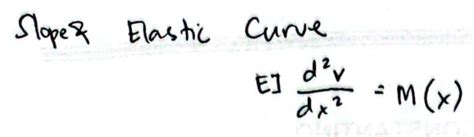 Slope & Elastic Curve
EI d²v/dx² = M(x)